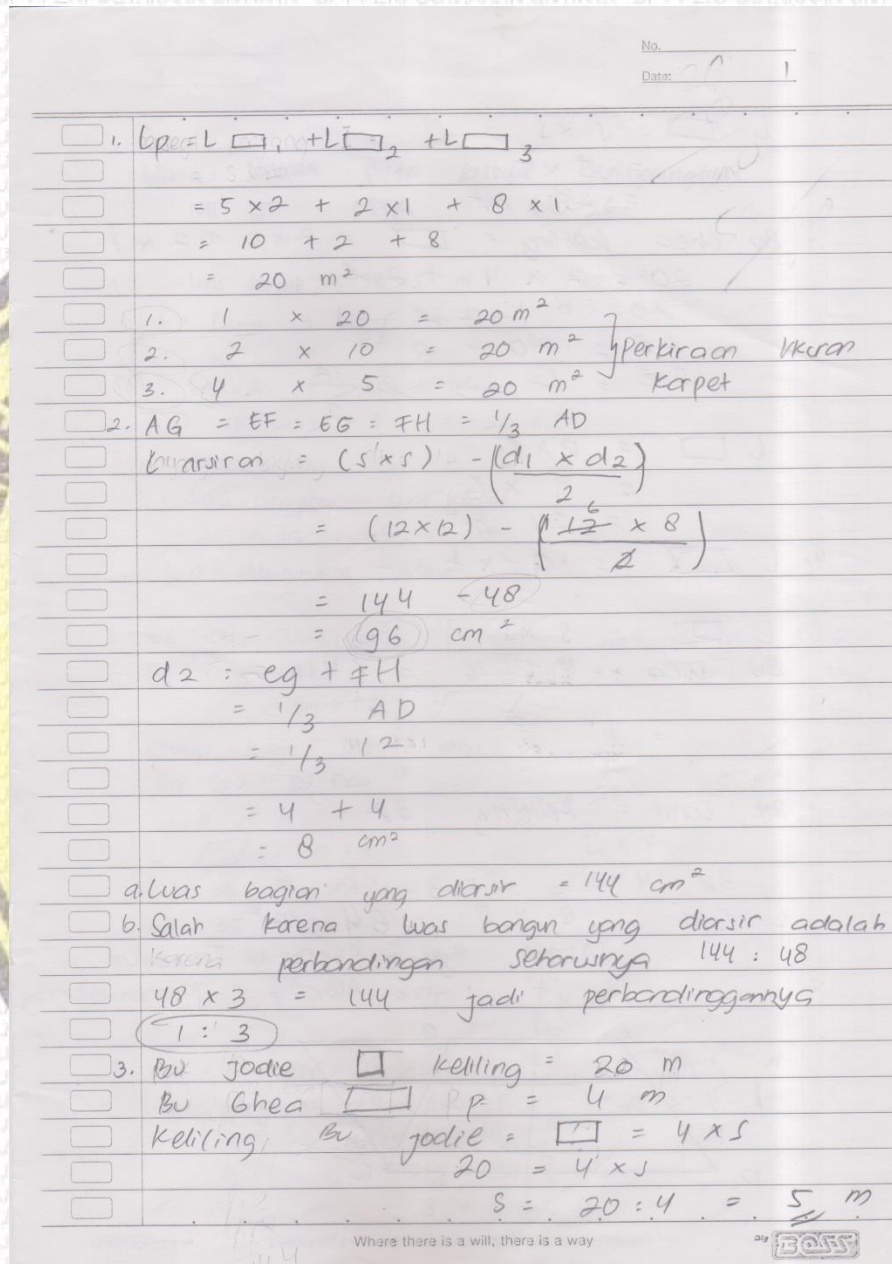 No.
Date: 1
1. Lp = L ▭ 1 + L ▭ 2 + L ▭ 3
= 5 x 2 + 2 x 1 + 8 x 1
= 10 + 2 + 8
= 20 m²
1. 1 x 20 = 20 m²
2. 2 x 10 = 20 m² } Perkiraan Ukuran
3. 4 x 5 = 20 m² Karpet
2. AG = EF = EG = FH = 1/3 AD
arsiran = (s x s) - (d1 x d2 / 2)
= (12 x 12) - (12 6 x 8 / 2)
= 144 - 48
= 96 cm²
d2 = eg + FH
= 1/3 AD
= 1/3 12
= 4 + 4
= 8 cm²
a. Luas bagian yang diarsir = 144 cm²
b. Salah karena luas bangun yang diarsir adalah
karena perbandingan seharusnya 144 : 48
48 x 3 = 144 jadi perbandinggannya
1 : 3
3. Bu Jodie □ keliling = 20 m
Bu Ghea ▭ p = 4 m
Keliling Bu jodie = ▭ = 4 x s
20 = 4 x s
s = 20 : 4 = 5 m
Where there is a will, there is a way
Big BOSS